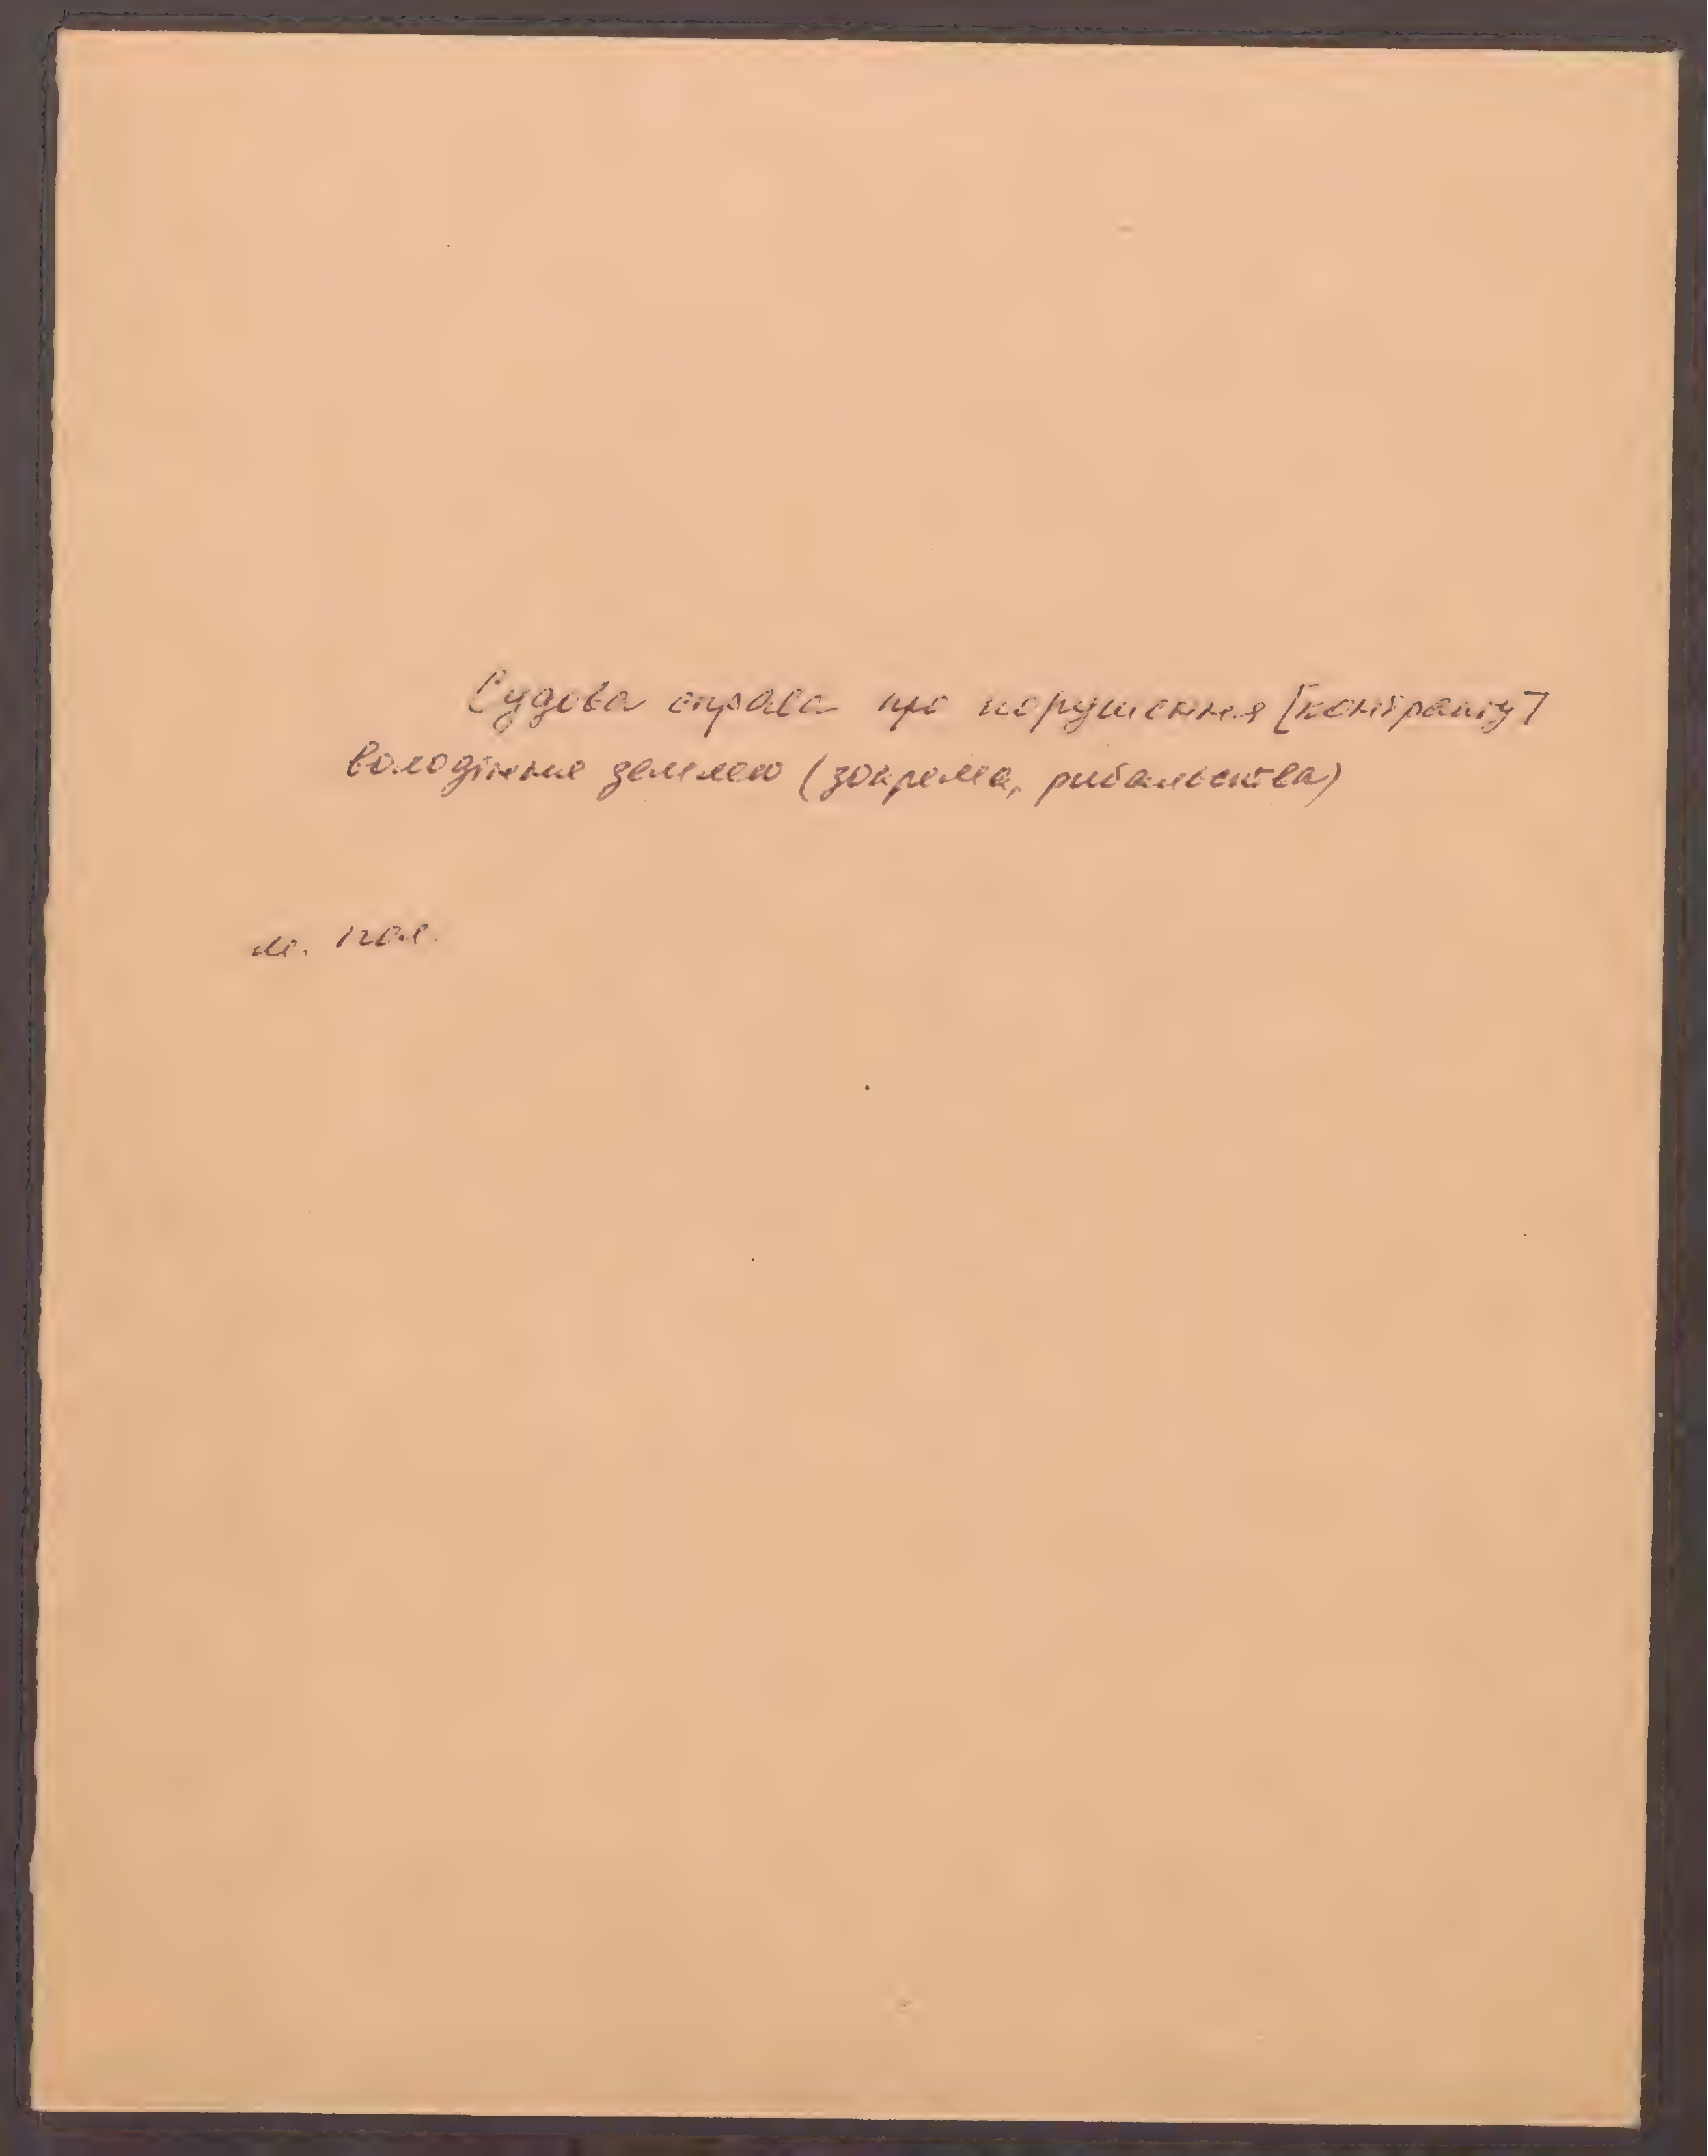 Судова справа про порушення [контракту]
володіння землею (зокрема, рибальства)
м. пол.